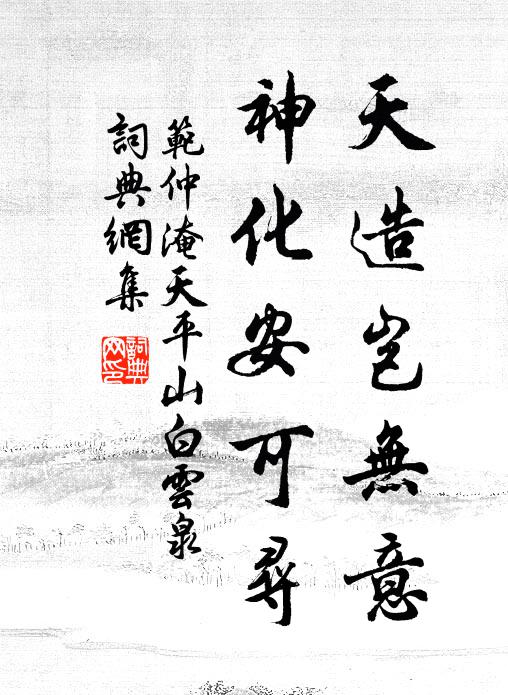 天造豈無意
神化安可尋
範仲淹天平山白雲泉
詞典網集
詞典
网印